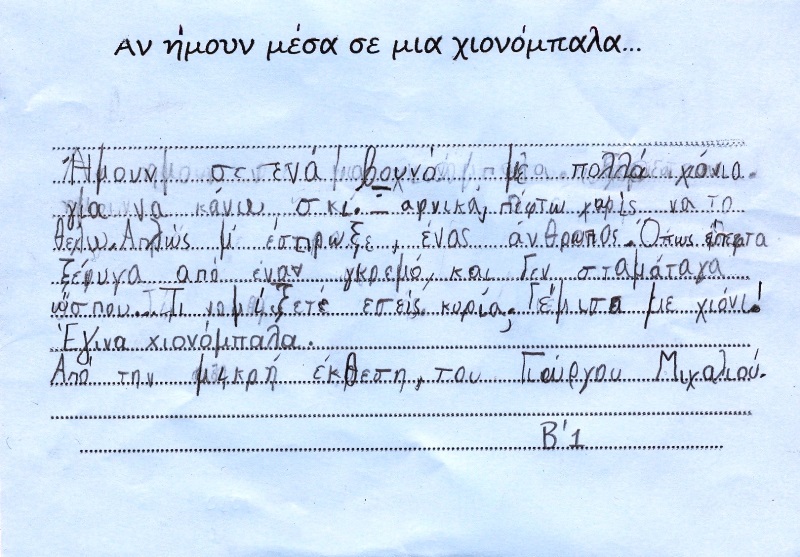 Αν ήμουν μέσα σε μια χιονόμπαλα...
Ήμουν σε ενά βουνό με πολλά χιόνια.
για να κάνω σκί. Ξαρνικά, πέφτω χορίς να το
θέλω. Απλώς μ' έσπρωξε, ένας άνθρωπος. Όπως έπεφτα
ξέφυγα από έναν γκρεμό, και δεν σταμάταγα
ώσπου... Τι νομίζετέ εσείς κυρία; Γέμισα με χιόνι!
Έγινα χιονόμπαλα.
Από την μικρή έκθεση, του Γιώργου Μιχαλιού.
Β'1